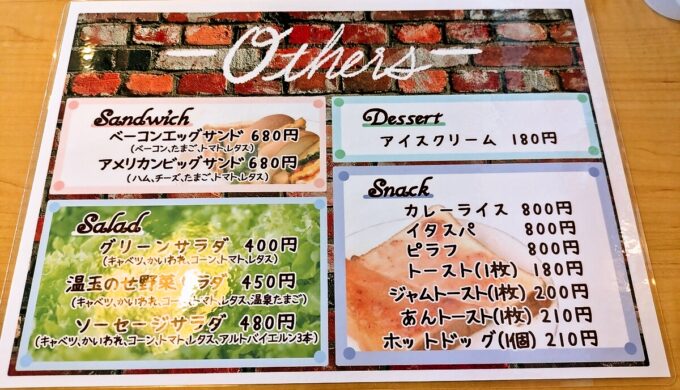 Others
Sandwich
ベーコンエッグサンド 680円
(ベーコン、たまご、トマト、レタス)
アメリカンビッグサンド 680円
(ハム、チーズ、たまご、トマト、レタス)
Salad
グリーンサラダ 400円
(キャベツ、かいわれ、コーン、トマト、レタス)
温玉のせ野菜サラダ 450円
(キャベツ、かいわれ、コーン、トマト、レタス、温泉たまご)
ソーセージサラダ 480円
(キャベツ、かいわれ、コーン、トマト、レタス、アルトバイエルン3本)
Dessert
アイスクリーム 180円
Snack
カレーライス 800円
イタスパ 800円
ピラフ 800円
トースト(1枚) 180円
ジャムトースト(1枚) 200円
あんトースト(1枚) 210円
ホットドッグ(1個) 210円